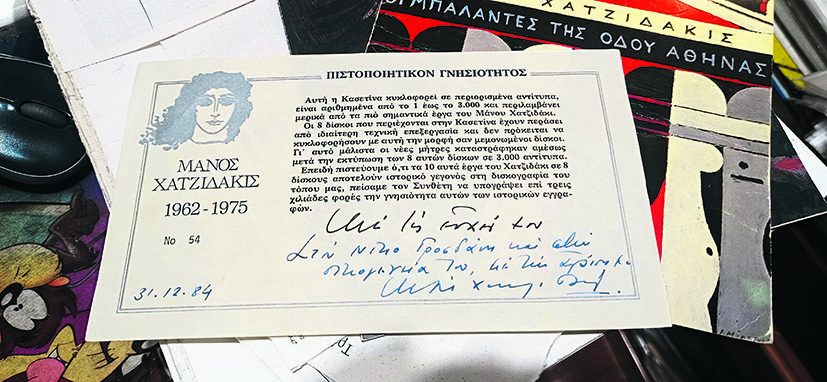 ΧΑΤΖΙΔΑΚΙΣ
ΜΠΑΛΑΝΤΕΣ ΤΗΣ ΟΔΟΥ ΑΘΗΝΑΣ
ΠΙΣΤΟΠΟΙΗΤΙΚΟΝ ΓΝΗΣΙΟΤΗΤΟΣ
Αυτή η Κασετίνα κυκλοφορεί σε περιορισμένα αντίτυπα,
είναι αριθμημένα από το 1 έως το 3.000 και περιλαμβάνει
μερικά από τα πιο σημαντικά έργα του Μάνου Χατζιδάκι.
Οι 8 δίσκοι που περιέχονται στην Κασετίνα έχουν περάσει
από ιδιαίτερη τεχνική επεξεργασία και δεν πρόκειται να
κυκλοφορήσουν με αυτή την μορφή σαν μεμονωμένοι δίσκοι.
Γι' αυτό μάλιστα οι νέες μήτρες καταστράφηκαν αμέσως
μετά την εκτύπωση των 8 αυτών δίσκων σε 3.000 αντίτυπα.
Επειδή πιστεύουμε ό,τι τα 10 αυτά έργα του Χατζιδάκι σε 8
δίσκους αποτελούν ιστορικό γεγονός στη δισκογραφία του
τόπου μας, πείσαμε τον Συνθέτη να υπογράψει επί τρεις
χιλιάδες φορές την γνησιότητα αυτών των ιστορικών εγγρα-
φών.
ΜΑΝΟΣ
ΧΑΤΖΙΔΑΚΙΣ
1962 - 1975
No 54
Στον Νίκο
και στην
οικογένειά του, με την
31.12.84